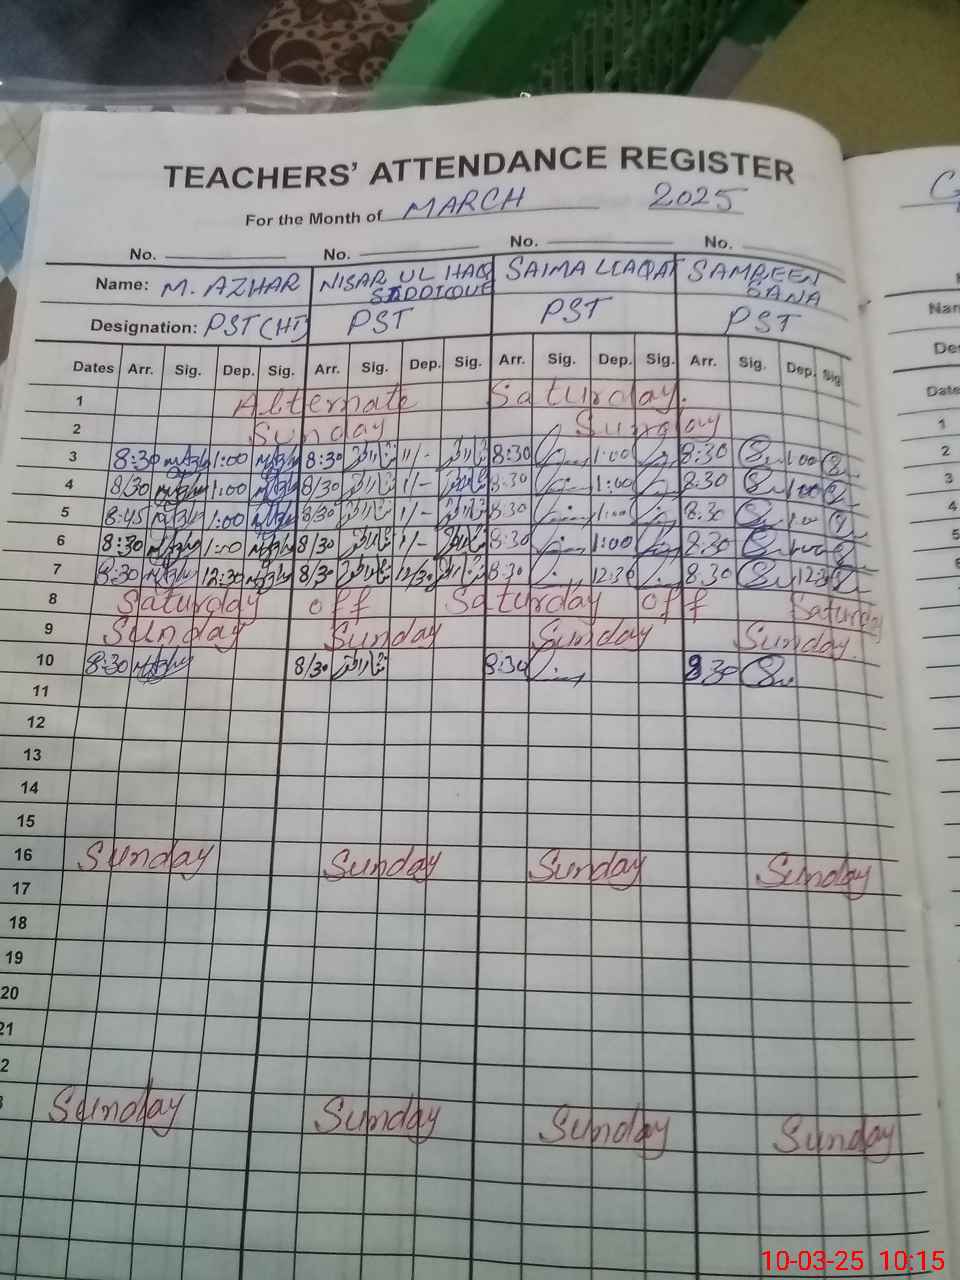 TEACHERS' ATTENDANCE REGISTER
For the Month of MARCH 2025
No. No. No. No.
Name: M. AZHAR NISAR UL HAQ SIDDIQUE SAIMA LIAQAT SAMREEN SANA
Designation: PST (HT) PST PST PST
Dates Arr. Sig. Dep. Sig. Arr. Sig. Dep. Sig. Arr. Sig. Dep. Sig. Arr. Sig. Dep. Sig
1 Alternate Saturday.
2 Sunday Sunday
3 8:30 1:00 8:30 1/- 8:30 1:00 8:30 1:00
4 8/30 1:00 8/30 1/- 8:30 1:00 8:30 1:00
5 8:45 1:00 8/30 1/- 8:30 1:00 8:30 1:00
6 8:30 1:00 8/30 1/- 8:30 1:00 8:30
7 8:30 12:30 8/30 12/30 8:30 12:30 8:30 12:30
8 Saturday off Saturday off Saturday
9 Sunday Sunday Sunday Sunday.
10 8:30 8/30 8:30 8:30
11
12
13
14
15
16 Sunday Sunday Sunday Sunday
17
18
19
20
21
2
Sunday Sunday Sunday Sunday
Nam
De
Date
1
2
3
4
5
10-03-25 10:15